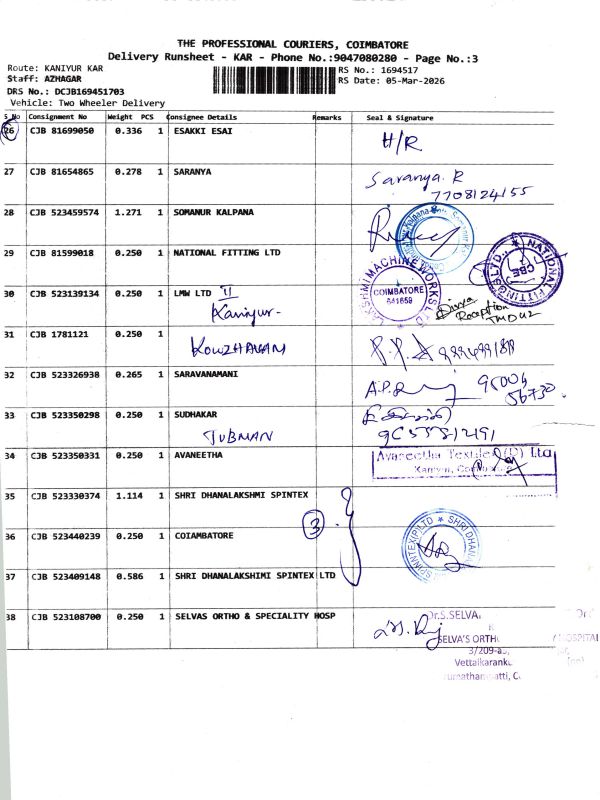 THE PROFESSIONAL COURIERS, COIMBATORE
Delivery Runsheet - KAR - Phone No.:9047080280 - Page No.:3
Route: KANIYUR KAR
RS No.: 1694517
Staff: AZHAGAR
RS Date: 05-Mar-2026
DRS No.: DCJB169451703
Vehicle: Two Wheeler Delivery
S_No Consignment No Weight PCS Consignee Details Remarks Seal & Signature
26 CJB 81699050 0.336 1 ESAKKI ESAI H/R
27 CJB 81654865 0.278 1 SARANYA Saranya. R
7708124155
28 CJB 523459574 1.271 1 SOMANUR KALPANA
29 CJB 81599018 0.250 1 NATIONAL FITTING LTD
NATIONAL FITTINGS LTD., CBE
30 CJB 523139134 0.250 1 LMW LTD II
Kaniyur-
LAKSHMI MACHINE WORKS LTD
COIMBATORE
641659
Divya
Reception
31 CJB 1781121 0.250 1
32 CJB 523326938 0.265 1 SARAVANAMANI
33 CJB 523350298 0.250 1 SUDHAKAR
TUBMAN
34 CJB 523350331 0.250 1 AVANEETHA
Avaneetha Textiles (P) Ltd
Kaniyur,
35 CJB 523330374 1.114 1 SHRI DHANALAKSHMI SPINTEX
3
36 CJB 523440239 0.250 1 COIAMBATORE
37 CJB 523409148 0.586 1 SHRI DHANALAKSHIMI SPINTEX LTD
38 CJB 523108700 0.250 1 SELVAS ORTHO & SPECIALITY HOSP
Dr.S.SELVA
SELVA'S ORTH
3/209-a